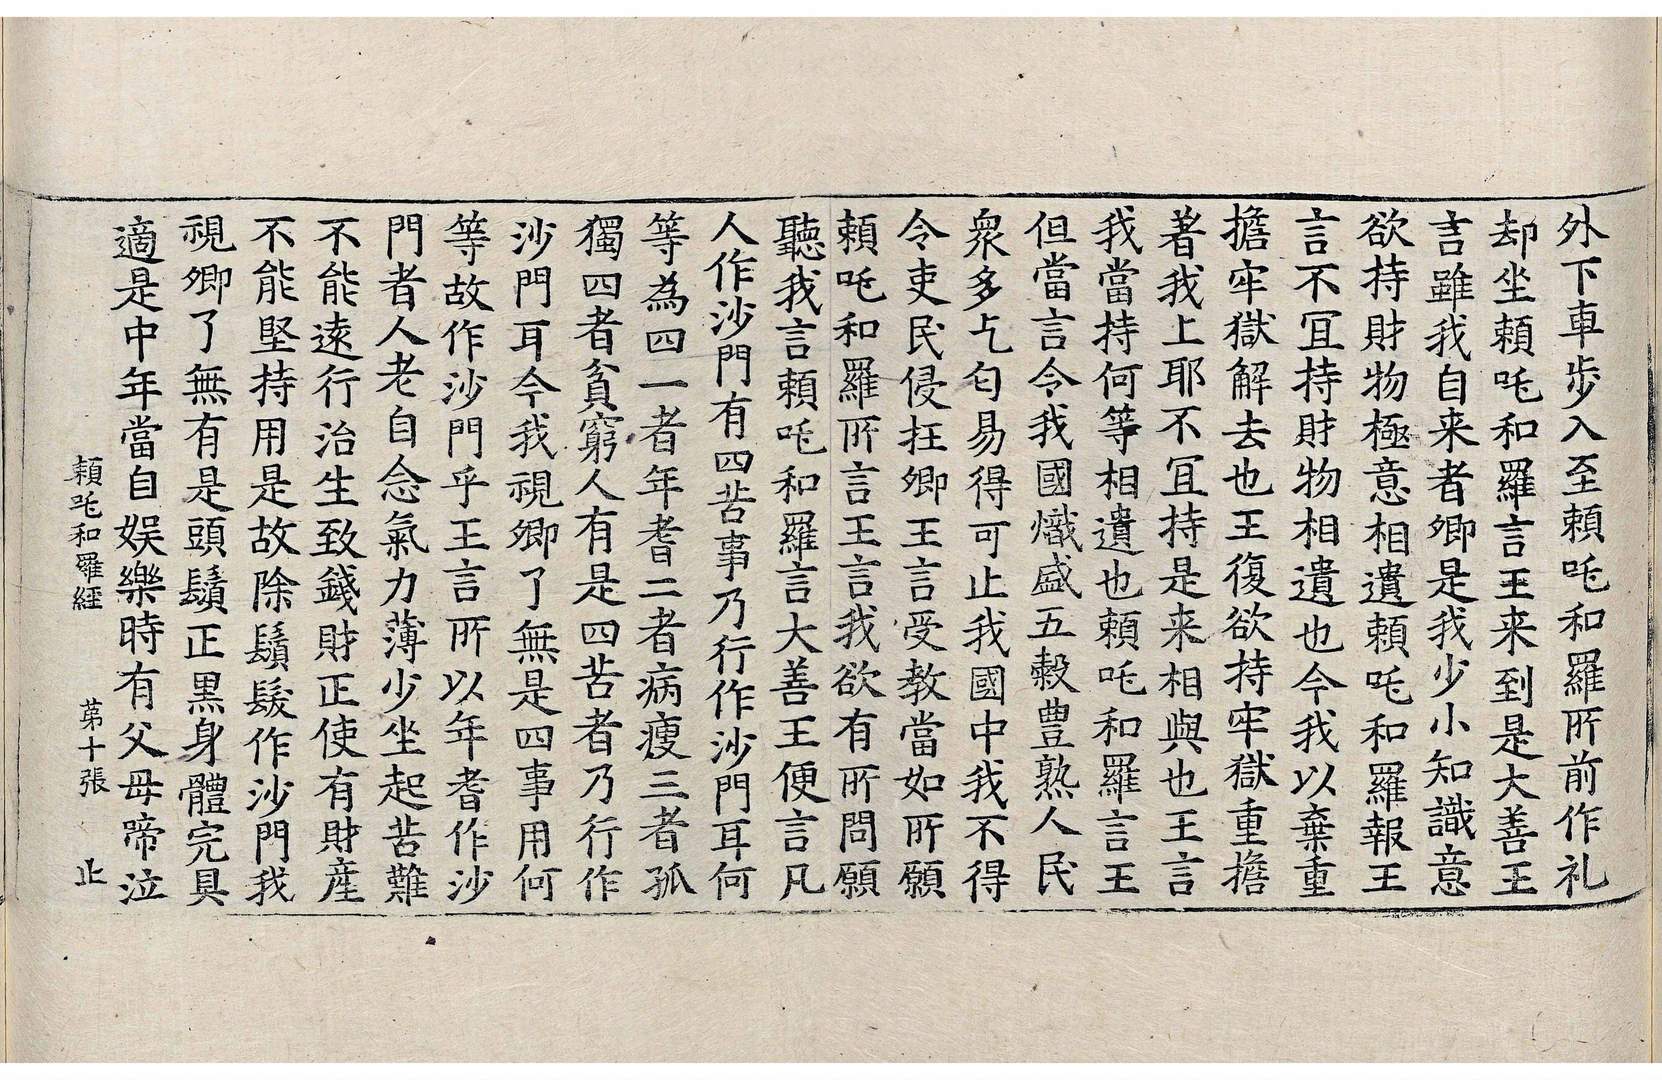 外下車步入至頼吒和羅所前作礼
却坐頼吒和羅言王来到是大善王
言雖我自来者卿是我少小知識意
欲持財物極意相遺頼吒和羅報王
言不冝持財物相遺也今我以棄重
擔牢獄解去也王復欲持牢獄重擔
著我上耶不冝持是来相與也王言
我當持何等相遺也頼吒和羅言王
但當言令我國熾盛五穀豊熟人民
衆多乞匂易得可止我國中我不得
令吏民侵抂卿王言受教當如所願
頼吒和羅所言王言我欲有所問願
聽我言頼吒和羅言大善王便言凡
人作沙門有四苦事乃行作沙門耳何
等為四一者年耆二者病瘦三者孤
獨四者貧窮人有是四苦者乃行作
沙門耳今我視卿了無是四事用何
等故作沙門乎王言所以年耆作沙
門者人老自念氣力薄少坐起苦難
不能遠行治生致錢財正使有財産
不能堅持用是故除鬚髮作沙門我
視卿了無有是頭鬚正黒身體完具
適是中年當自娛樂時有父母啼泣
頼吒和羅經 苐十張 止